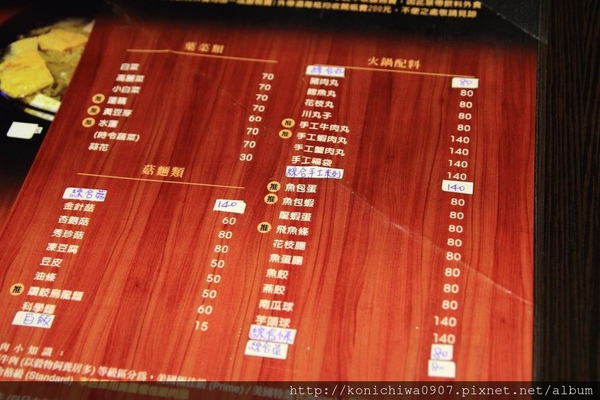 葉菜類
白菜 70
高麗菜 70
小白菜 70
70
推 黃豆芽 60
推 水蓮 70
(時令蔬菜) 70
蒜花 30
菇麵類
綜合菇 140
金針菇 60
杏鮑菇 80
秀珍菇 80
凍豆腐 50
豆皮 50
油條 50
推 讚餃烏龍麵 60
科學麵 15
白飯
火鍋配料
80
豬肉丸 80
鱈魚丸 80
花枝丸 80
川丸子 80
推 手工牛肉丸 140
推 手工蝦肉丸 140
手工蟹肉丸 140
手工福袋
綜合手工系列 140
推 魚包蛋 80
推 魚包蝦 80
龍蝦蛋 80
推 飛魚條 80
花枝圈 80
魚蛋圈 80
魚餃 80
燕餃 80
南瓜球 140
芋頭球 140
80
80
肉小知識：
牛肉(以穀物飼養居多)等級區分為，美國
(Standard)
http://konichiwa0907.pixnet.net/album